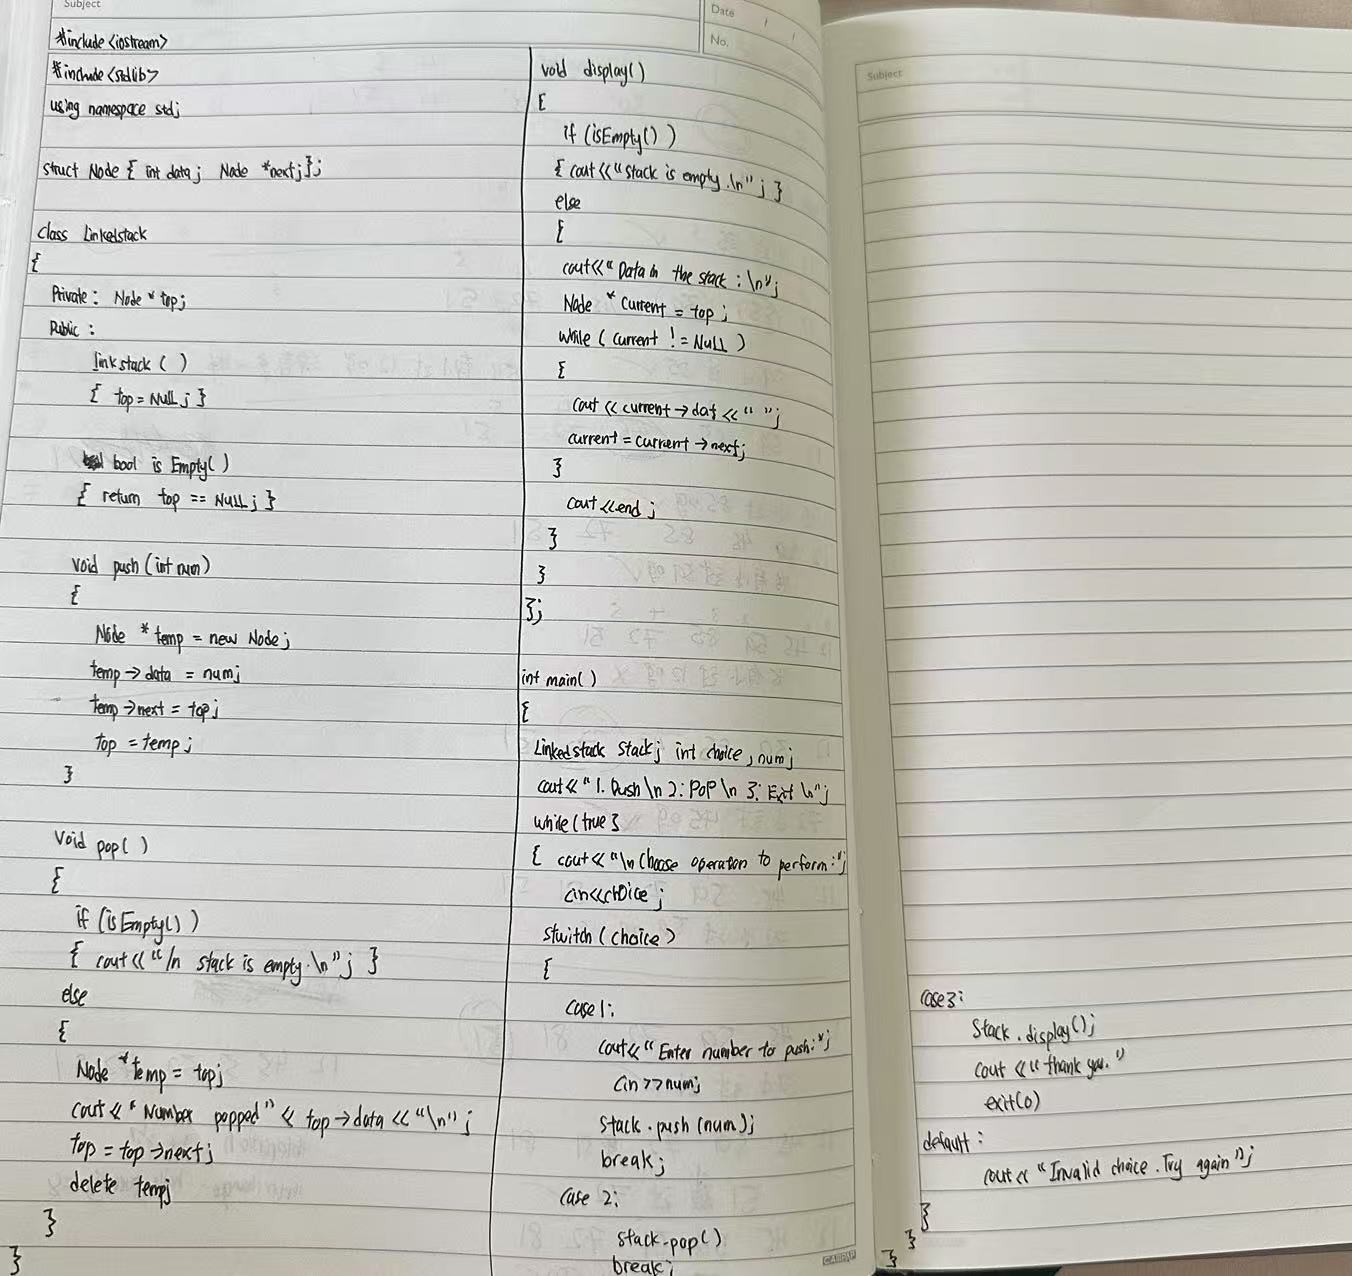 Subject
Date
No.
#include <iostream>
#include <stdlib>
using namespace std;
struct Node { int data; Node *next; };
class Linkedstack
{
Private: Node * top;
Public :
linkstack ( )
{ top = NULL ; }
bool is Empty( )
{ return top == NULL ; }
void push (int num)
{
Node * temp = new Node ;
temp → data = num;
temp → next = top;
top = temp ;
}
Void pop( )
{
if (isEmpty())
{ cout << "/n stack is empty.\n" ; }
else
{
Node * temp = top;
cout << "Number popped" << top → data << "\n" ;
top = top → next;
delete temp;
}
}
void display()
{
if (isEmpty() )
{ cout << "stack is empty .\n" ; }
else
{
cout << " Data in the stack : \n";
Node * current = top ;
while ( current != NULL )
{
cout << current → dat << " " ;
current = current → next;
}
cout << end ;
}
}
};
int main()
{
Linkedstack stack; int choice , num;
cout << " 1. Push \n 2: POP \n 3: Exit \n";
while (true }
{ cout << "\n Choose operation to perform:";
cin << choice ;
switch ( choice )
{
case 1:
cout << " Enter number to push:";
cin >> num;
stack . push (num);
break ;
case 2:
stack . pop( )
break ;
Subject
case 3:
Stack . display();
cout << " thank you. "
exit(0)
default :
cout << " Invalid choice . Try again ";
}
}
}